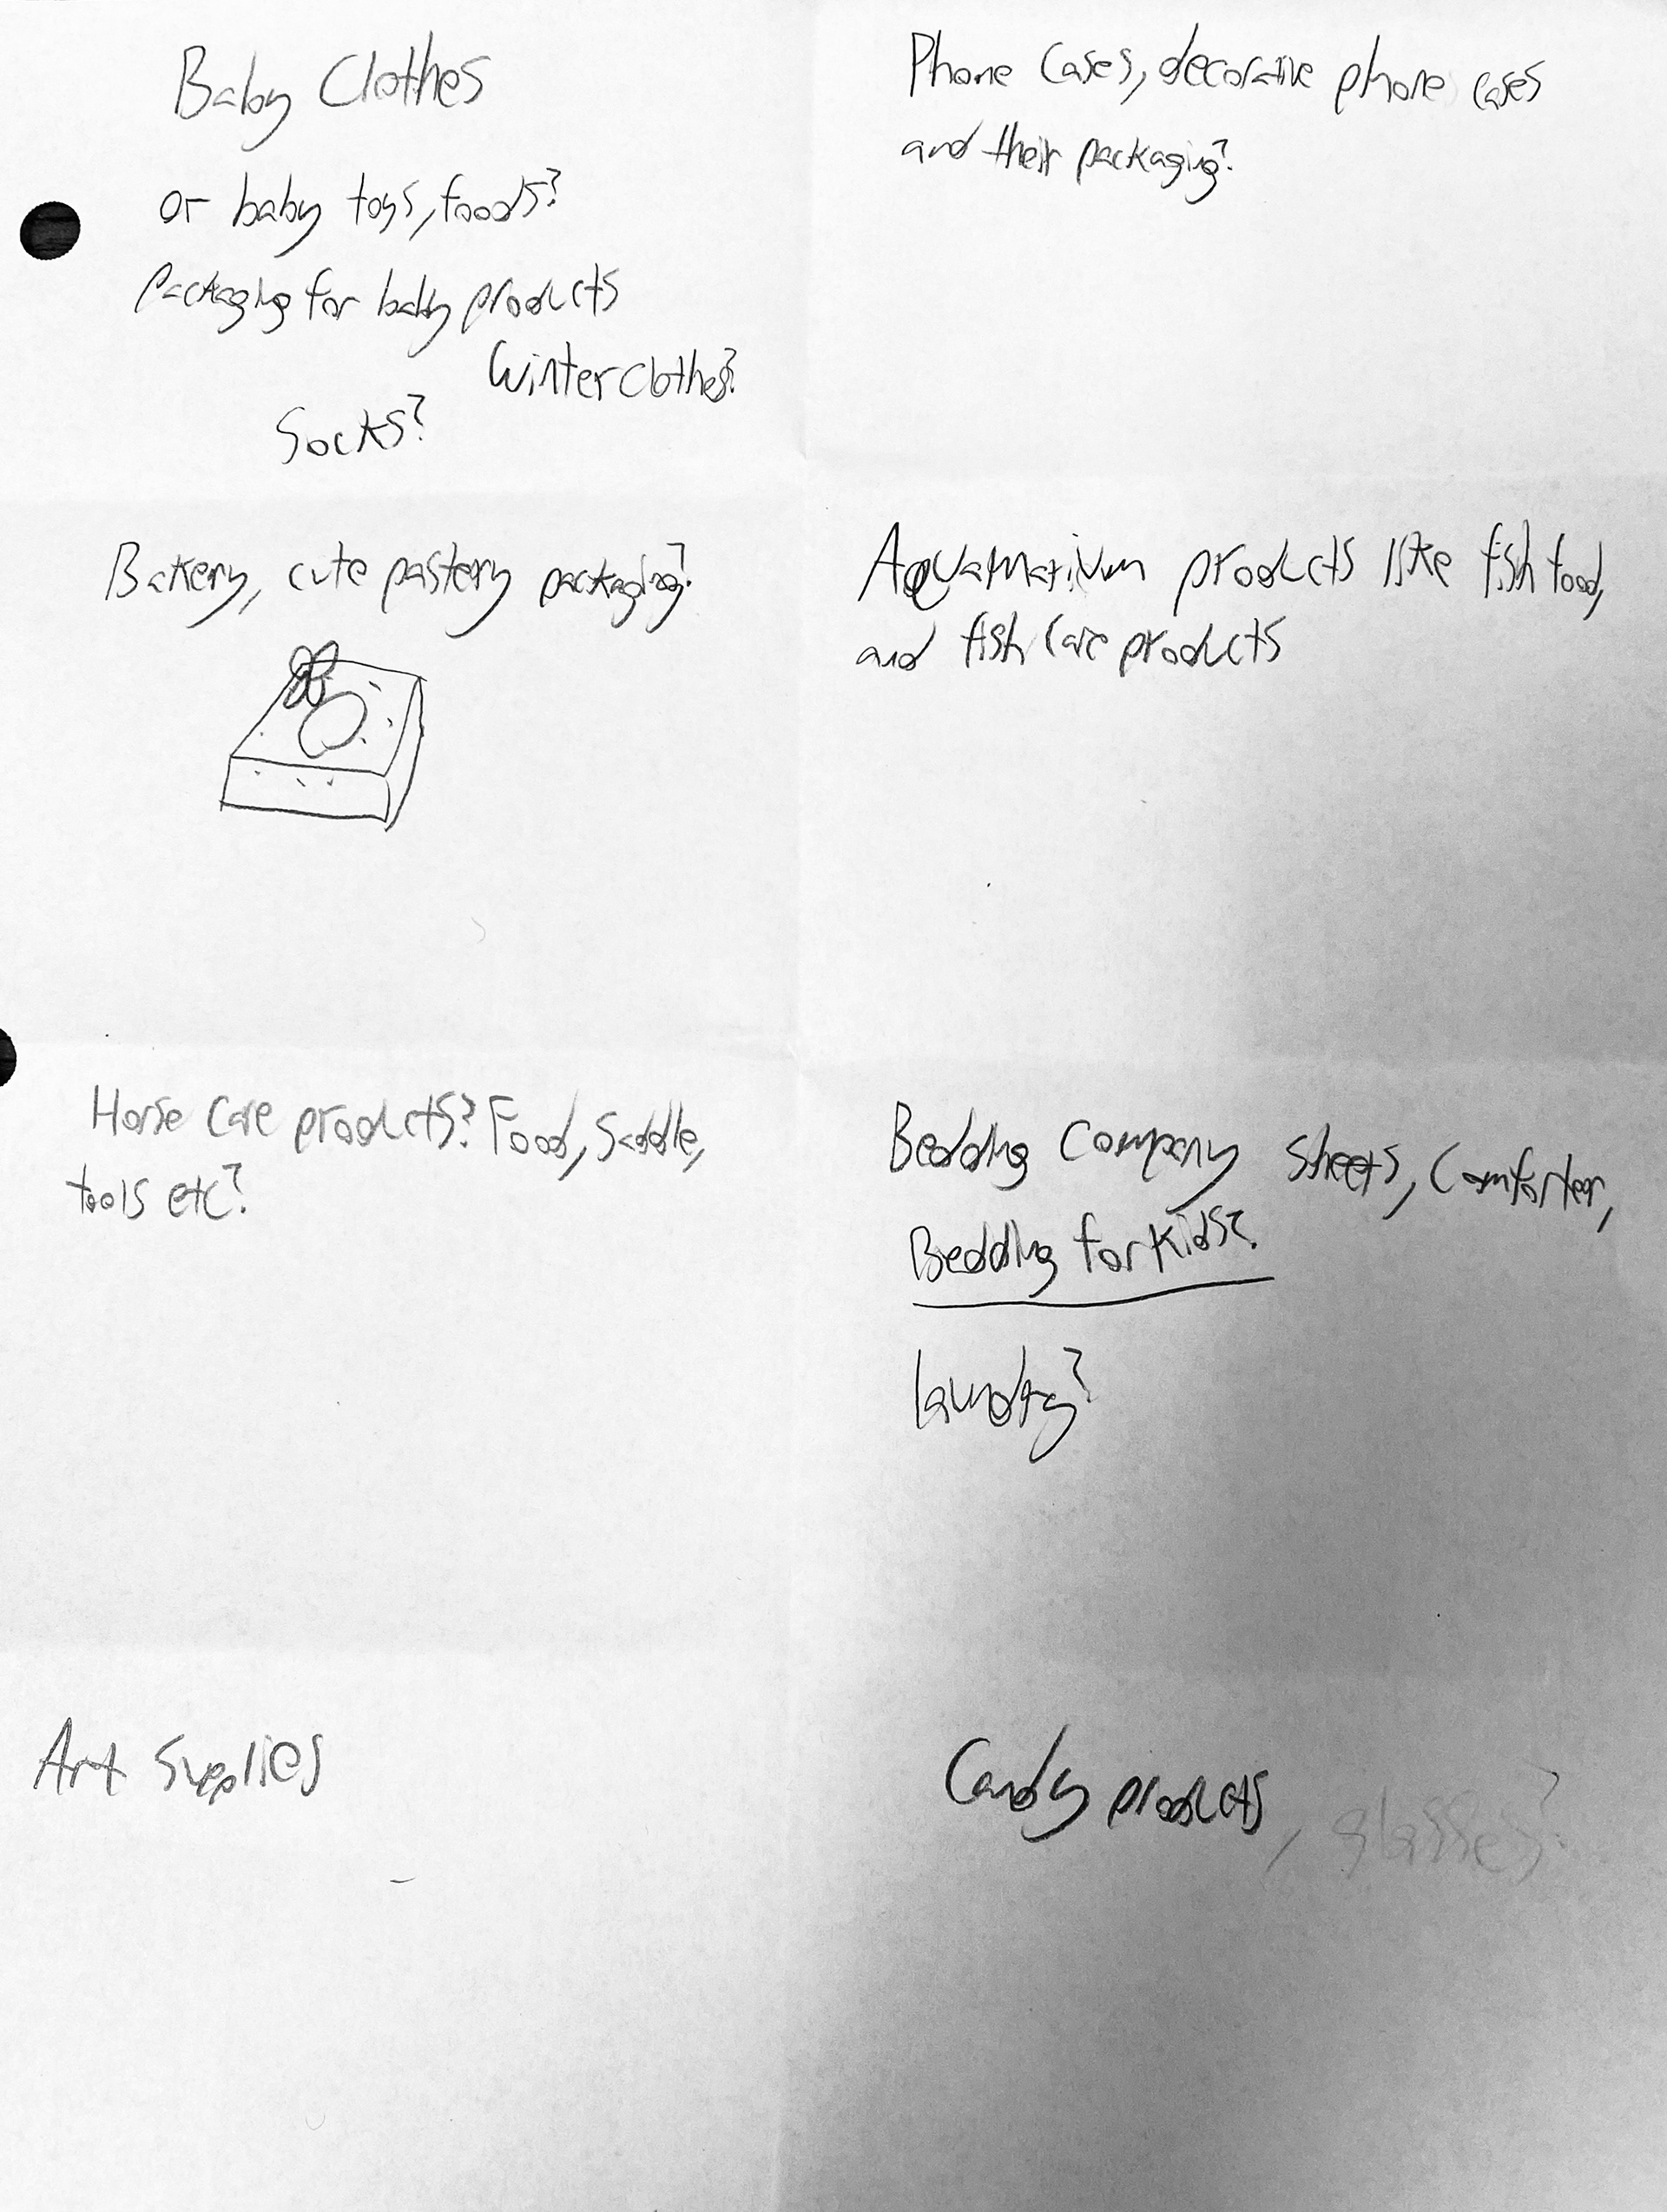 Baby Clothes
or baby toys, foods?
Packaging for baby products
Winter clothes?
Socks?
Phone Cases, decorative phone cases
and their packaging?
Bakery, cute pastery packaging?
Aquamarium products like fish food,
and fish care products
Horse Care products? Food, Saddle,
tools etc?
Bedding Company sheets, Comforter,
Bedding for kids?
laundry?
Art Supplies
Candy products, glasses?